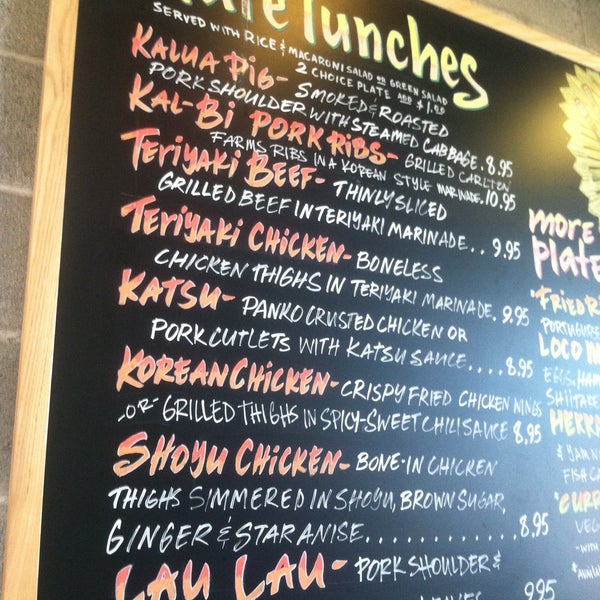 lunches
SERVED WITH RICE & MACARONI SALAD OR GREEN SALAD
2 CHOICE PLATE ADD $1.00
KALUA PIG- SMOKED & ROASTED
PORK SHOULDER WITH STEAMED CABBAGE. 8.95
KAL-BI PORK RIBS- GRILLED CARLTON
FARMS RIBS IN A KOREAN STYLE MARINADE. 10.95
TERIYAKI BEEF- THINLY SLICED
GRILLED BEEF IN TERIYAKI MARINADE.. 9.95
TERIYAKI CHICKEN- BONELESS
CHICKEN THIGHS IN TERIYAKI MARINADE. 9.95
KATSU- PANKO CRUSTED CHICKEN OR
PORK CUTLETS WITH KATSU SAUCE.... 8.95
KOREAN CHICKEN- CRISPY FRIED CHICKEN WINGS
-OR- GRILLED THIGHS IN SPICY-SWEET CHILI SAUCE 8.95
SHOYU CHICKEN- BONE-IN CHICKEN
THIGHS SIMMERED IN SHOYU, BROWN SUGAR,
GINGER & STAR ANISE............ 8.95
LAU LAU- PORK SHOULDER &
9.95
more
plate
"FRIED RI
PORTUGUESE
LOCO M
EGGS, HAM
SHIITAKE
HEKKA
& YAM N
FISH CA
"CURR
VEG
-WITH